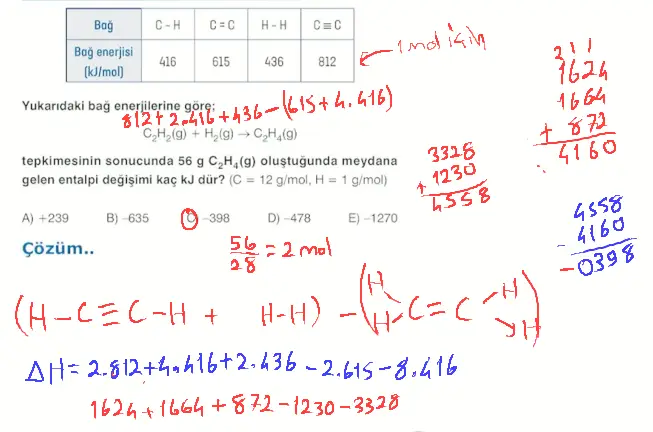 Bağ C - H C = C H - H C ≡ C
Bağ enerjisi (kJ/mol) 416 615 436 812
1 mol için
Yukarıdaki bağ enerjilerine göre;
812+2.416+436-(615+4.416)
C₂H₂(g) + H₂(g) → C₂H₄(g)
tepkimesinin sonucunda 56 g C₂H₄(g) oluştuğunda meydana
gelen entalpi değişimi kaç kJ dür? (C = 12 g/mol, H = 1 g/mol)
A) +239 B) -635 C) -398 D) -478 E) -1270
211
1624
1664
+ 872
4160
3328
+ 1230
4558
4558
- 4160
-0398
Çözüm..
56/28 = 2 mol
(H-C≡C-H + H-H) - (H H C=C H H)
ΔH = 2.812+4.416+2.436-2.615-8.416
1624+1664+872-1230-3328